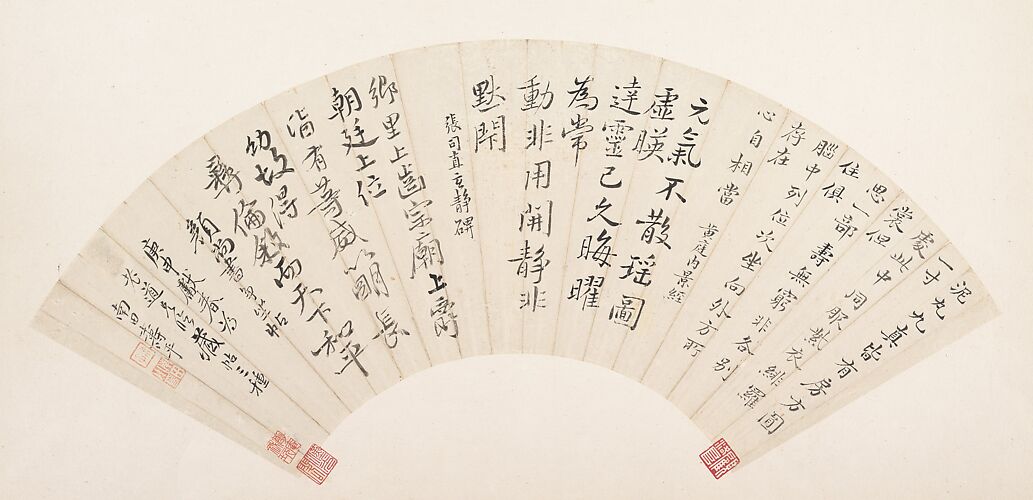 泥丸九真皆有房方圓
一寸
處此中同服紫衣緋羅
裳但
思一部壽無窮非各別
住俱
腦中列位次坐向外方所
存在
心自相當
黃庭内景經
元氣不散瑤圖
虛暎
達靈已久晦曜
為常
動非用開靜非
默閇
張司直玄靜碑
鄉里上齒宗廟上爵
朝廷上位
皆有等威以明長
幼故得
彝倫敘而天下和平
顏尚書爭坐帖
庚申獻春為
道兄臨 帖三種
南田壽平